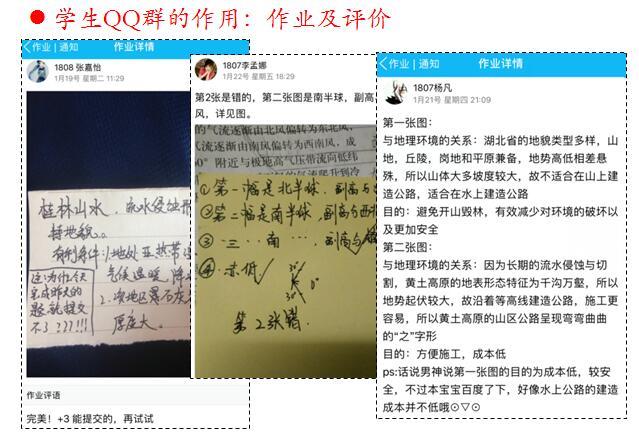 学生QQ群的作用：作业及评价
作业 | 通知
作业详情
1808 张嘉怡
1月19号 星期二 11:29
桂林山水，流水侵蚀形
特地貌。
有利条件：1.地处亚热带
气候温暖，降
2.
厚度大。
这为什么今天
完成昨天的
题就提交
不了???!!!
作业评语
完美！+3 能提交的，再试试
1807李孟娜
1月22号 星期五 18:29
第2张是错的，第二张图是南半球，副高
风，详见图。
的气流逐渐由北风偏转为东北风，
流逐渐由南风偏转为西南风，成
0°附近与极地高气压带流向低纬
①第一幅是北半球，副高与
②第二幅是南半球，副高与西
③三……南……，副高与
④赤低
30°
0°
30°
第2张错.
作业 | 通知
作业详情
1807杨凡
1月21号 星期四 21:09
第一张图：
与地理环境的关系：湖北省的地貌类型多样，山
地，丘陵，岗地和平原兼备，地势高低相差悬
殊，所以山体大多坡度较大，故不适合在山上建
造公路，适合在水上建造公路
目的：避免开山毁林，有效减少对环境的破坏以
及更加安全
第二张图：
与地理环境的关系：因为长期的流水侵蚀与切
割，黄土高原的地表形态特征为千沟万壑，所以
地势起伏较大，故沿着等高线建造公路，施工更
容易，所以黄土高原的山区公路呈现弯弯曲曲
的“之”字形
目的：方便施工，成本低
ps:话说男神说第一张图的目的为成本低，较安
全，不过本宝宝百度了下，好像水上公路的建造
成本并不低哦⊙▽⊙